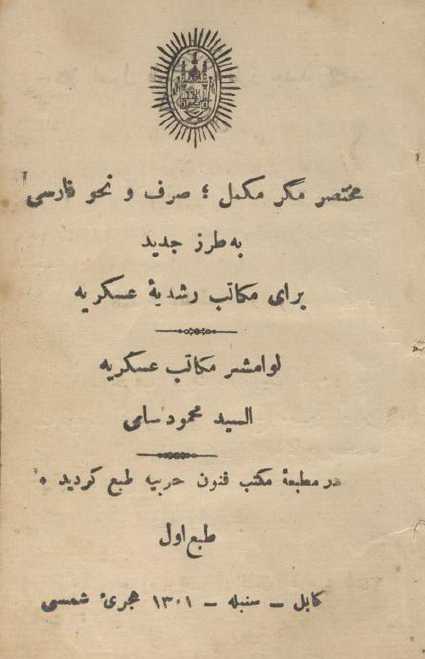 مختصر مگر مکمل ؛ صرف و نحو فارسی
به طرز جدید
برای مکاتب رشدیهٔ عسکریه
لوامشر مکاتب عسکریه
السید محمود سامی
در مطبعهٔ مکتب فنون حربیه طبع گردید
طبع اول
کابل – سنبله – ۱۳۰۱ هجریٔ شمسی